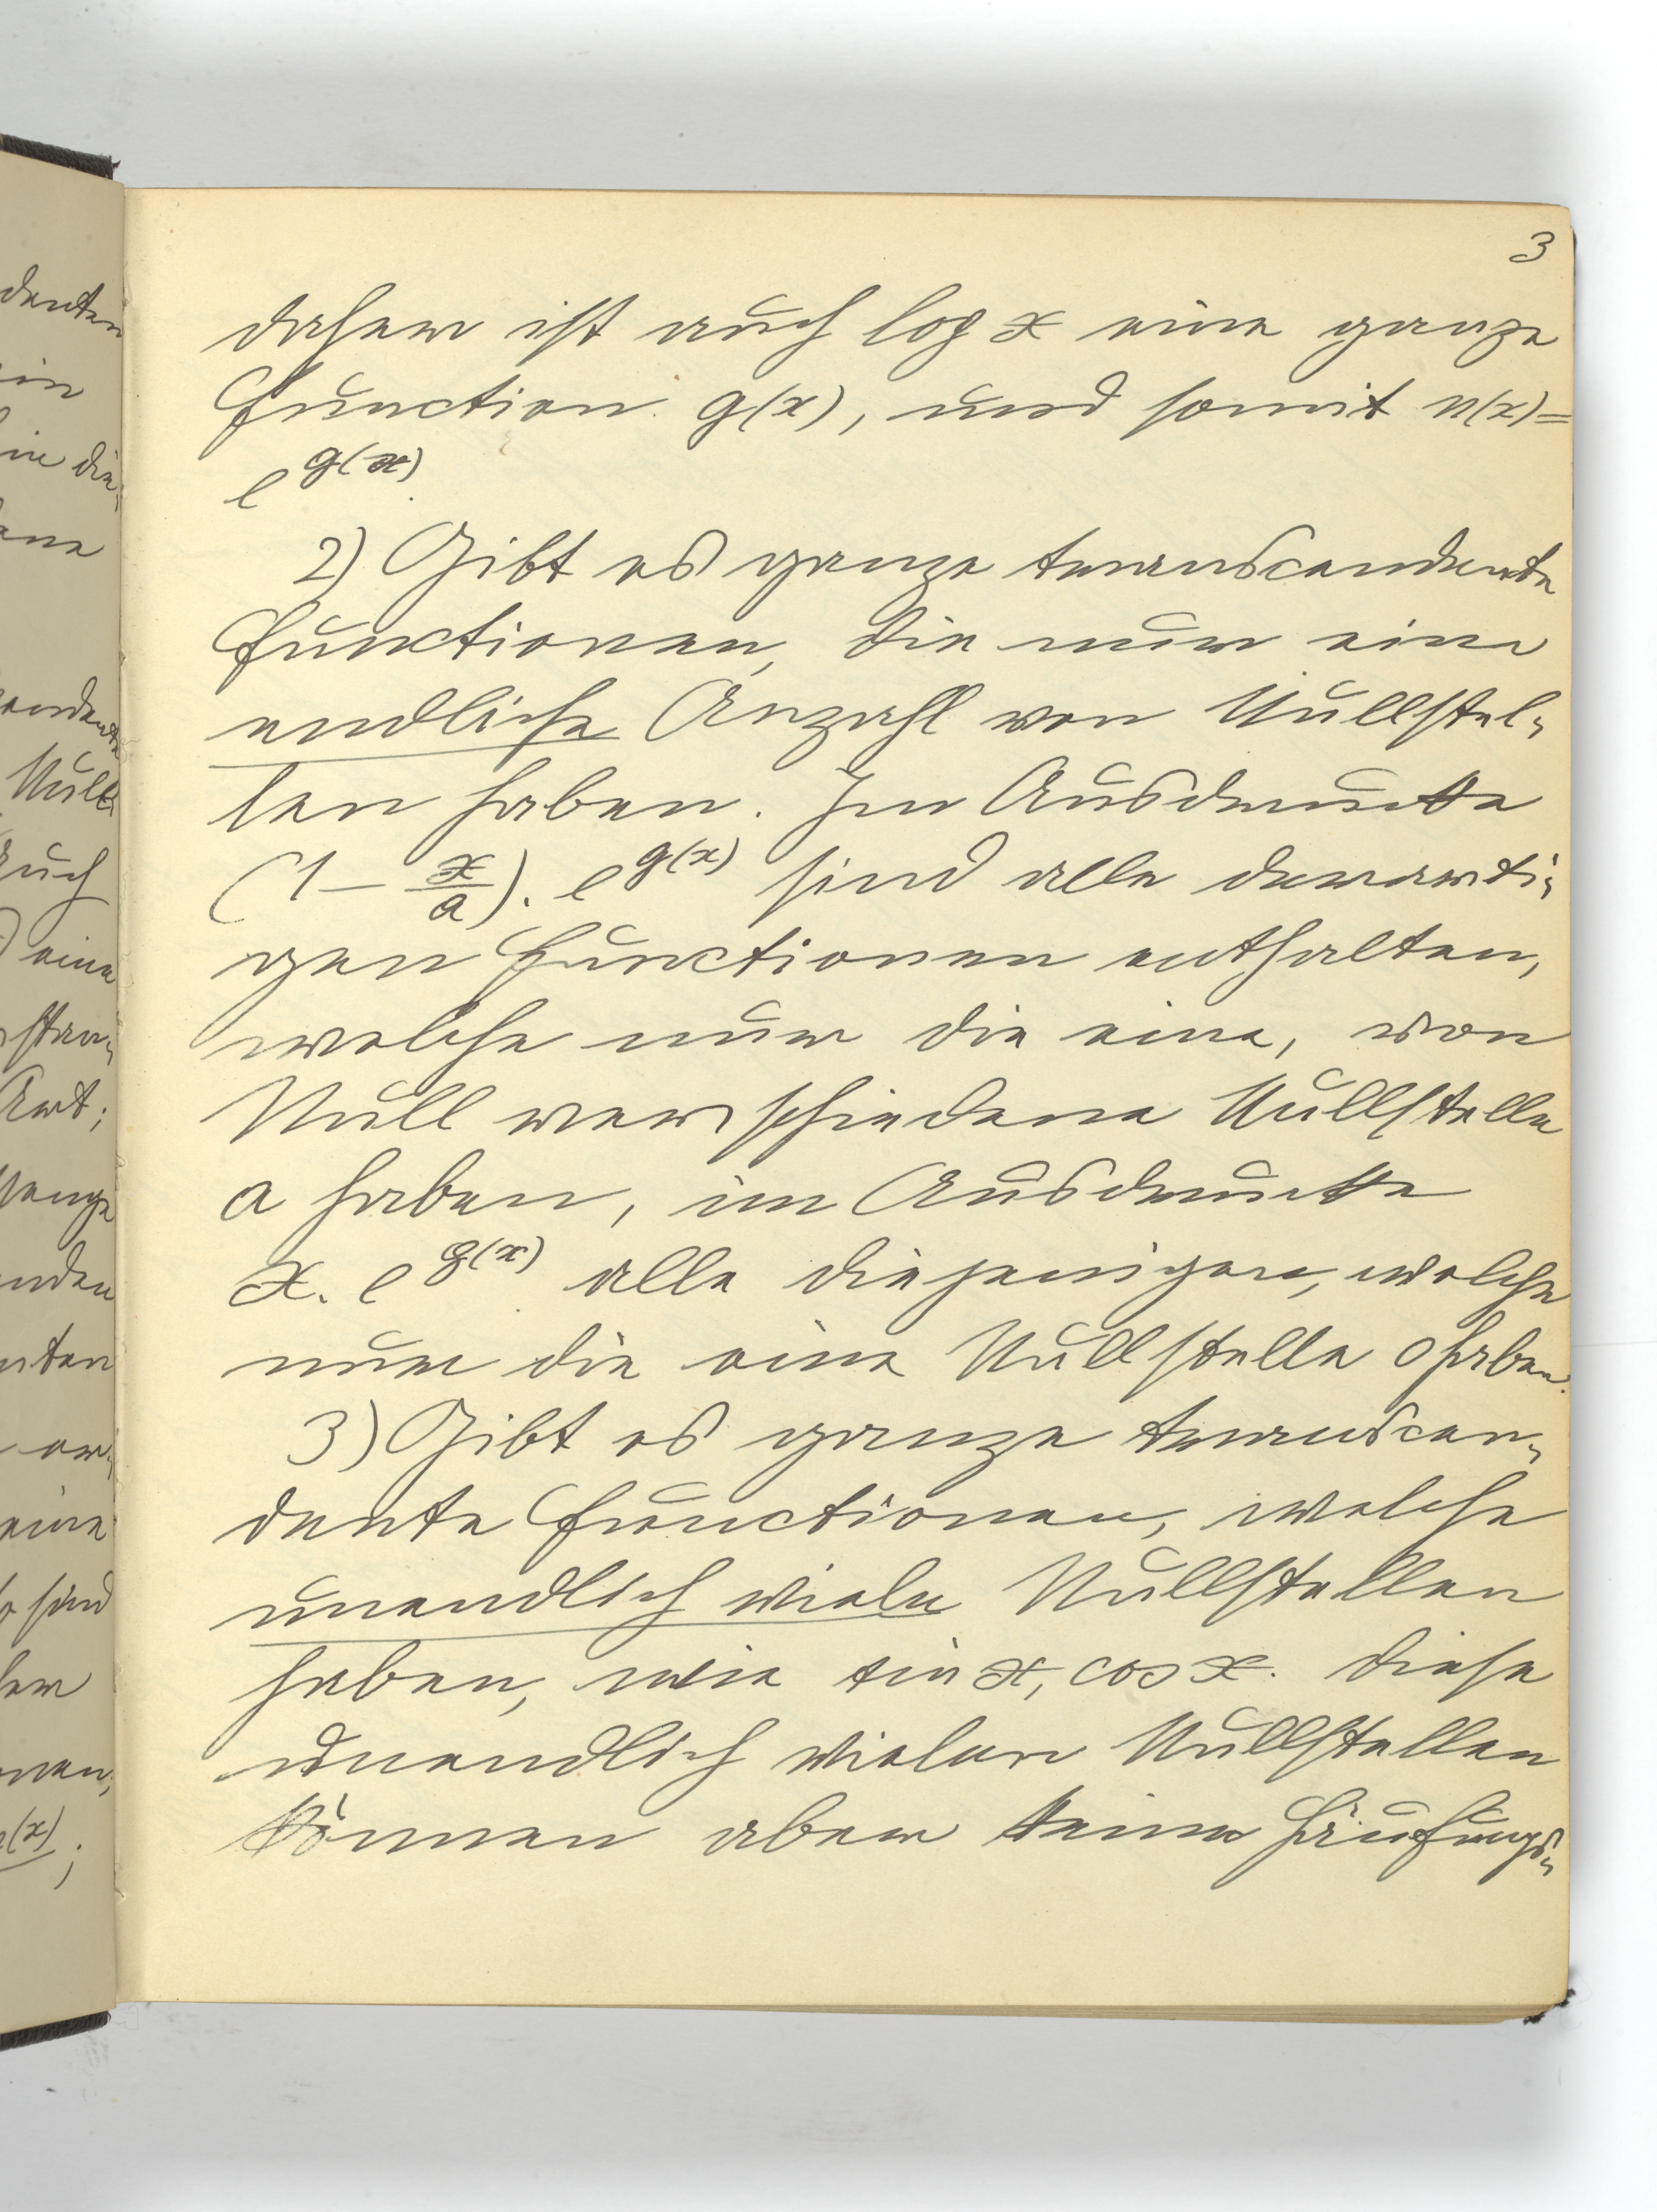 3
daher ist auch log x eine ganze
Function g(x), und somit n(x)=
e^g(x)
2) Gibt es ganze transcendente
Functionen, die nur eine
endliche Anzahl von Nullstel-
len haben. Im Ausdrucke
(1 - x/a). e^g(x) sind alle derarti-
gen Functionen enthalten,
welche nur die eine, von
Null verschiedene Nullstelle
a haben, im Ausdrucke
x. e^g(x) alle diejenigen, welche
nur die eine Nullstelle 0 haben.
3) Gibt es ganze transcen-
dente Functionen, welche
unendlich viele Nullstellen
haben, wie sin x, cos x. Diese
unendlich vielen Nullstellen
können aber keine Häufungs-